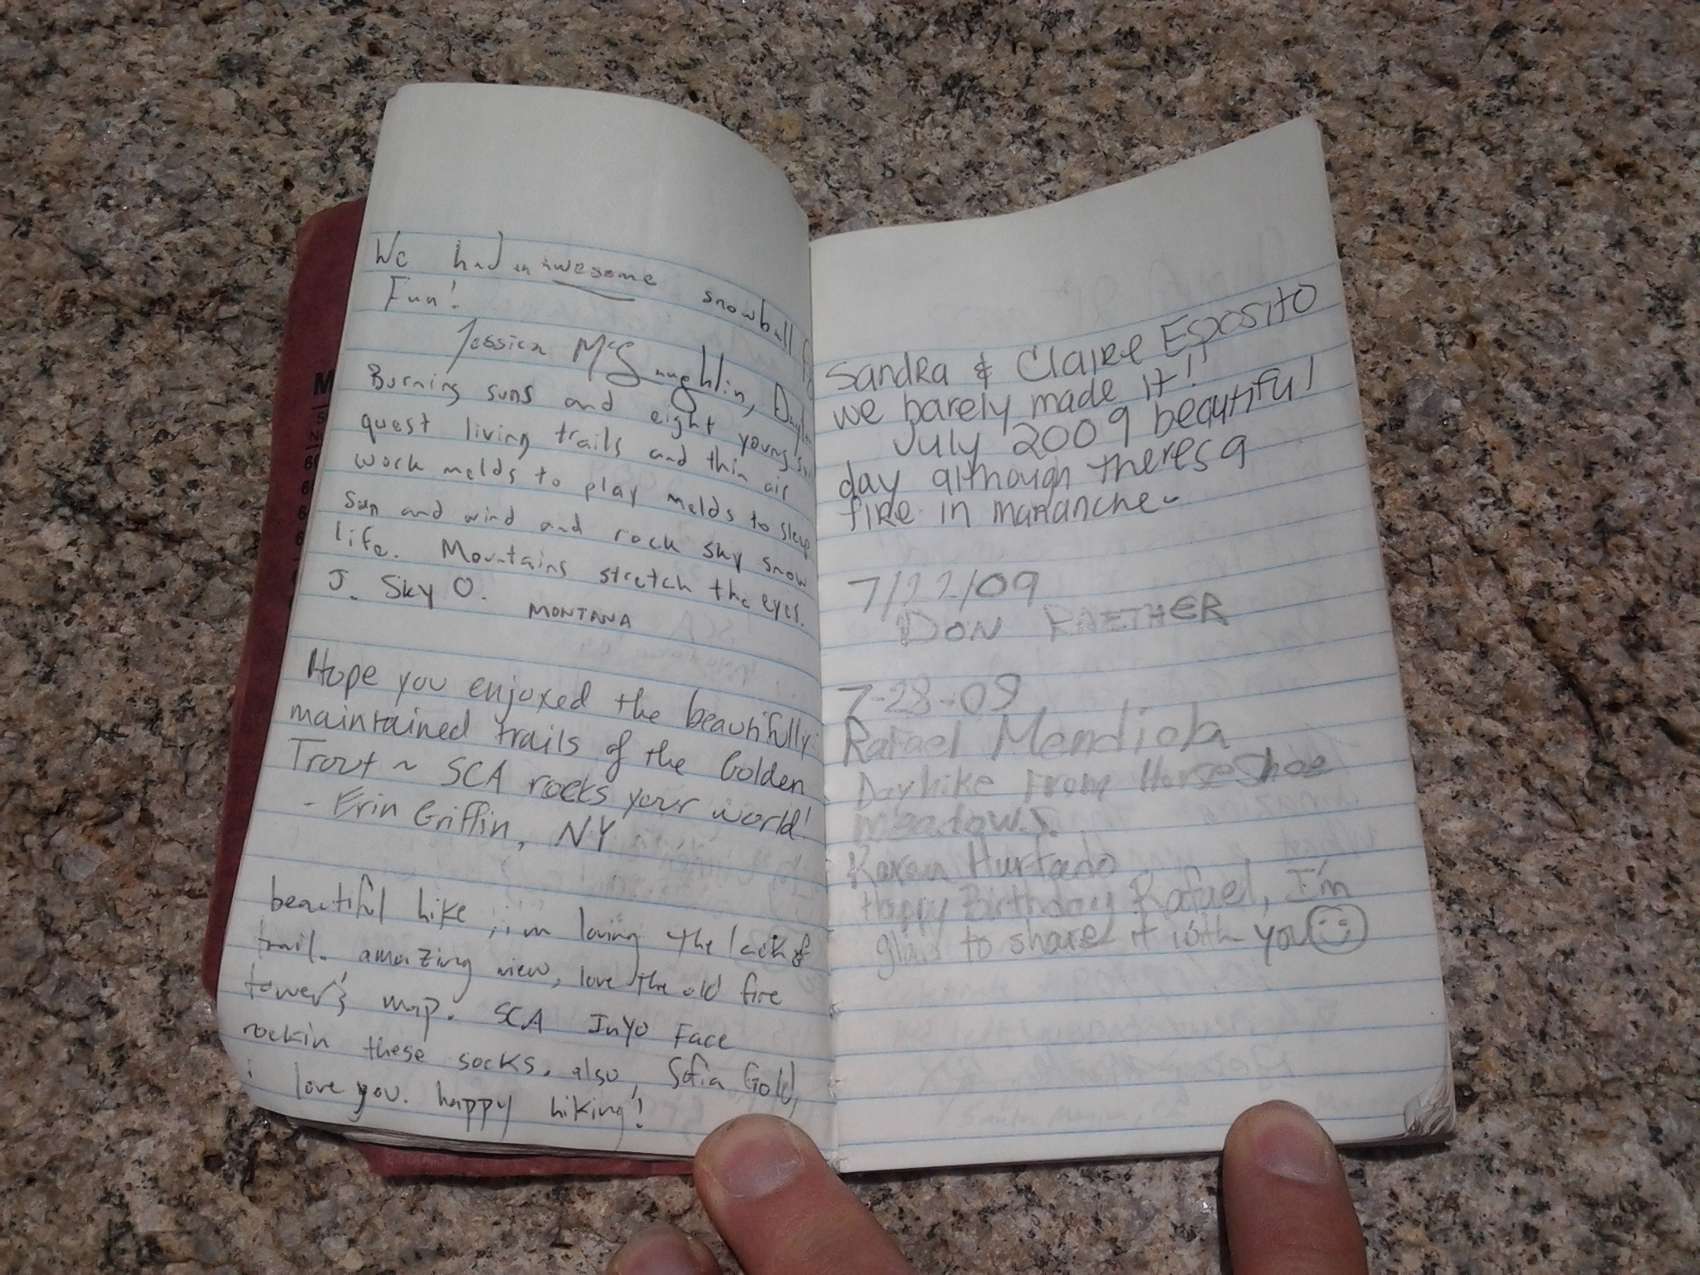 We had an awesome snowball
Fun!
Jessica McLaughlin,
Burning suns and eight young
quest living trails and thin air
work melds to play melds to sleep
sun and wind and rock sky snow
life. Mountains stretch the eyes.
J. Sky O. MONTANA
Hope you enjoyed the beautifully
maintained trails of the Golden
Trout ~ SCA rocks your world!
- Erin Griffin, NY
beautiful hike, i'm loving the lack of
trail. amazing view, love the old fire
tower's map. SCA INYO FACE
rockin these socks. also, Sofia Gold,
i love you. happy hiking!
Sandra & Claire Esposito
we barely made it!!
July 2009 beautiful
day although theres a
fire in mananche
7/22/09
DON
7-28-09
Rafael Mendiola
Dayhike from Horseshoe
meadows.
Karen Hurtado
Happy Birthday Rafael, I'm
glad to share it with you